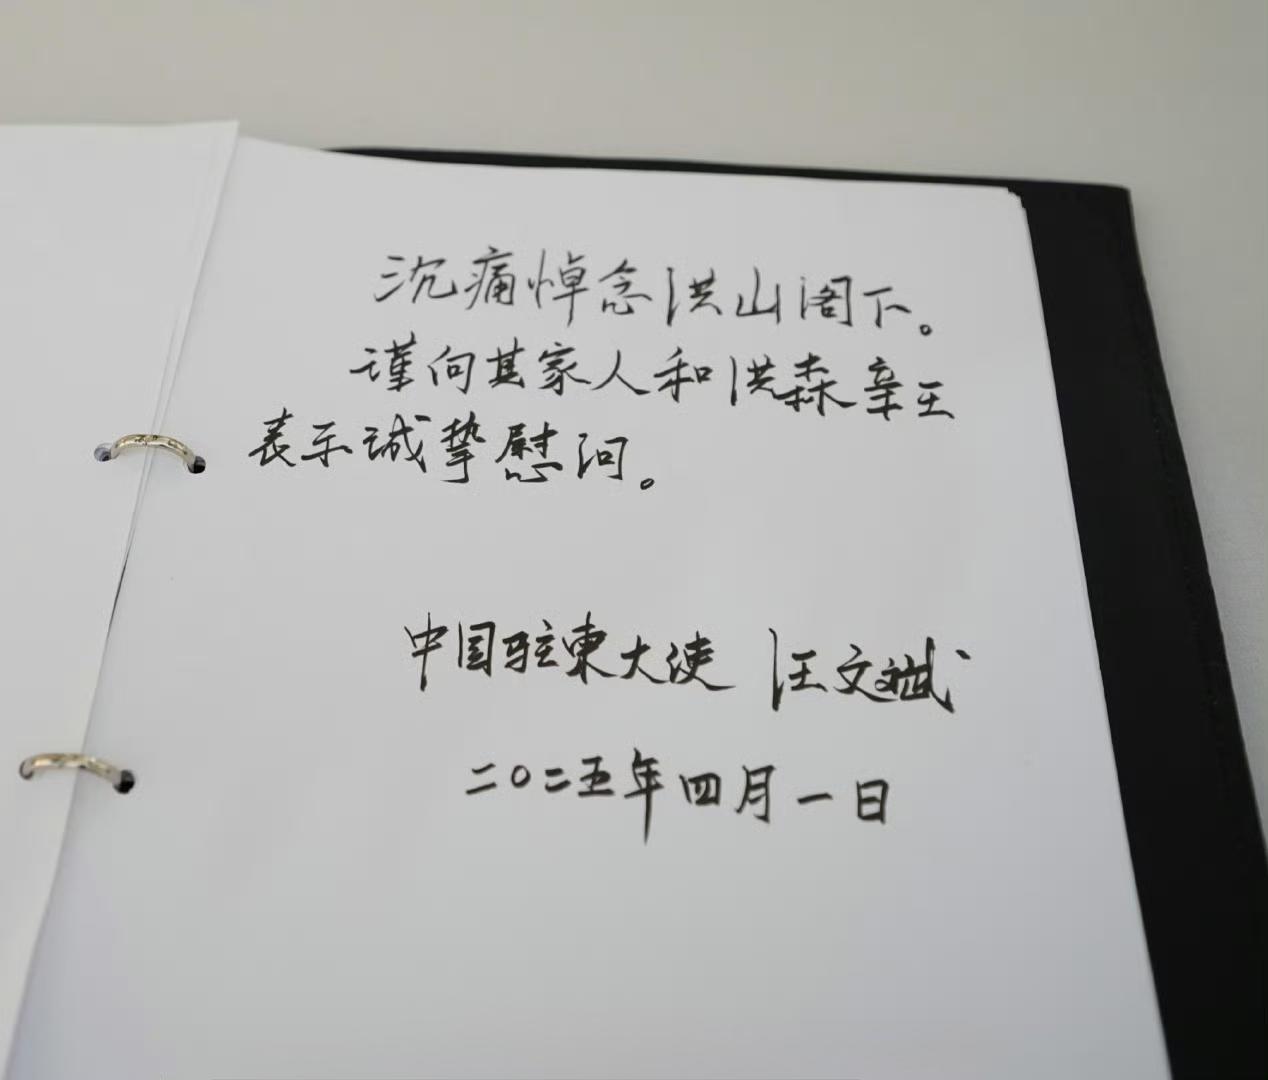 沉痛悼念洪山阁下。
谨向其家人和洪森亲王
表示诚挚慰问。
中国驻柬大使 汪文斌
二〇二五年四月一日